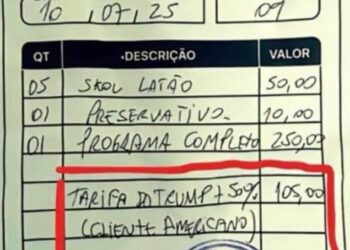 10 , 07, 25 09
QT DESCRIÇÃO VALOR
05 SKOL LATÃO 50,00
01 PRESERVATIVO. 10,00
01 PROGRAMA COMPLETO 250,00
TARIFA DO TRUMP + 50% 105,00
(CLIENTE AMERICANO)